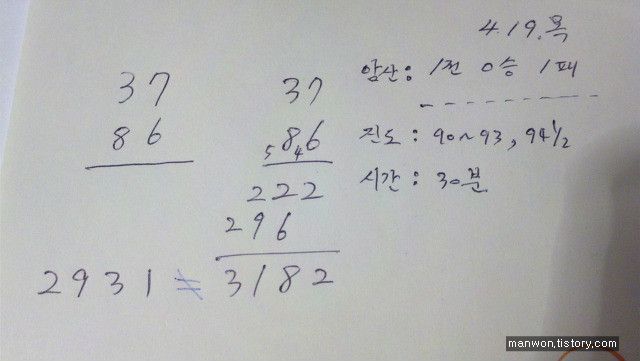 4.19.목
암산: 1전 0승 1패
진도: 90~93, 94½
시간: 30분
37
86
37
86
5 4
222
296
2931 ≠ 3182
manwon.tistory.com